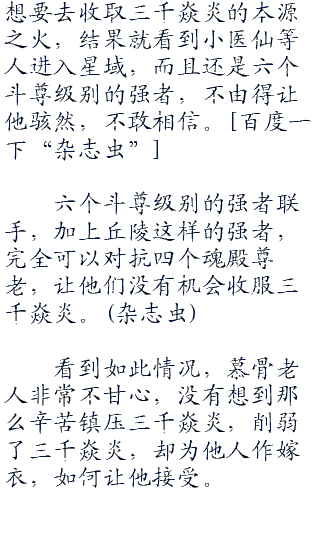 想要去收取三千焱炎的本源
之火，结果就看到小医仙等
人进入星域，而且还是六个
斗尊级别的强者，不由得让
他骇然，不敢相信。[百度一
下“杂志虫”]
六个斗尊级别的强者联
手，加上丘陵这样的强者，
完全可以对抗四个魂殿尊
老，让他们没有机会收服三
千焱炎。(杂志虫)
看到如此情况，慕骨老
人非常不甘心，没有想到那
么辛苦镇压三千焱炎，削弱
了三千焱炎，却为他人作嫁
衣，如何让他接受。